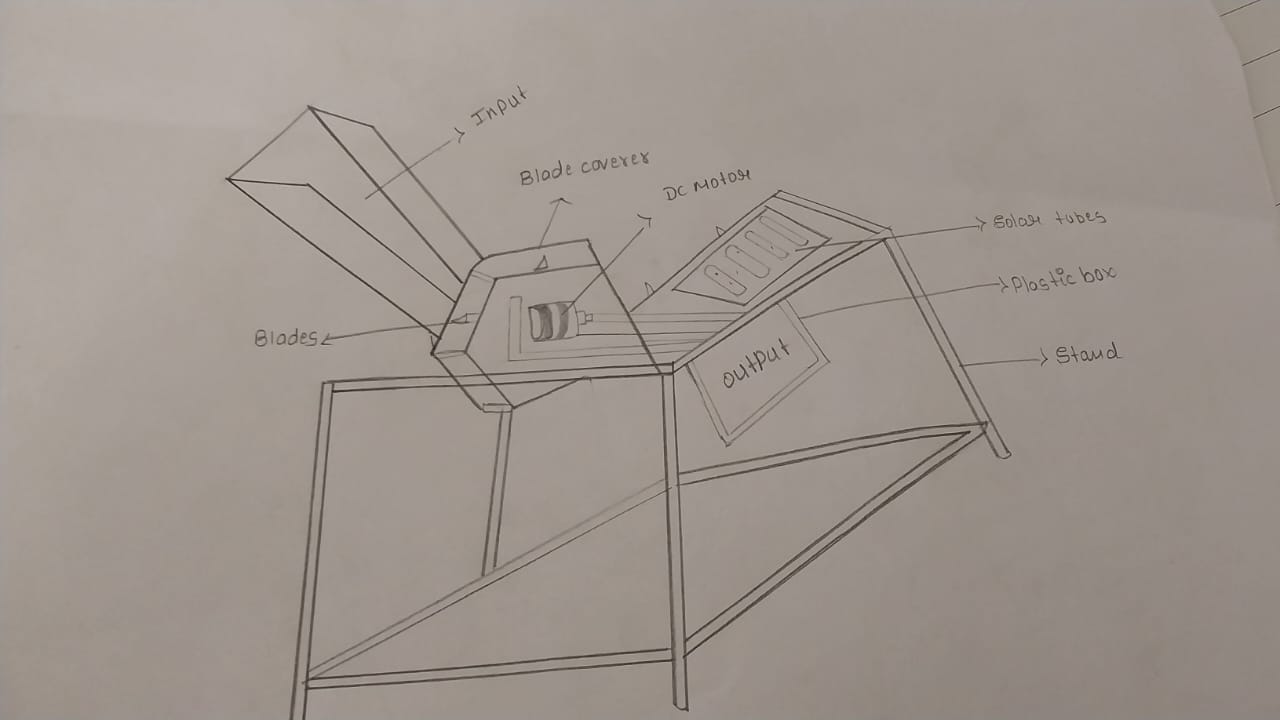 Input
Blade coverer
DC Motor
Solar tubes
Plastic box
Blades
output
Stand